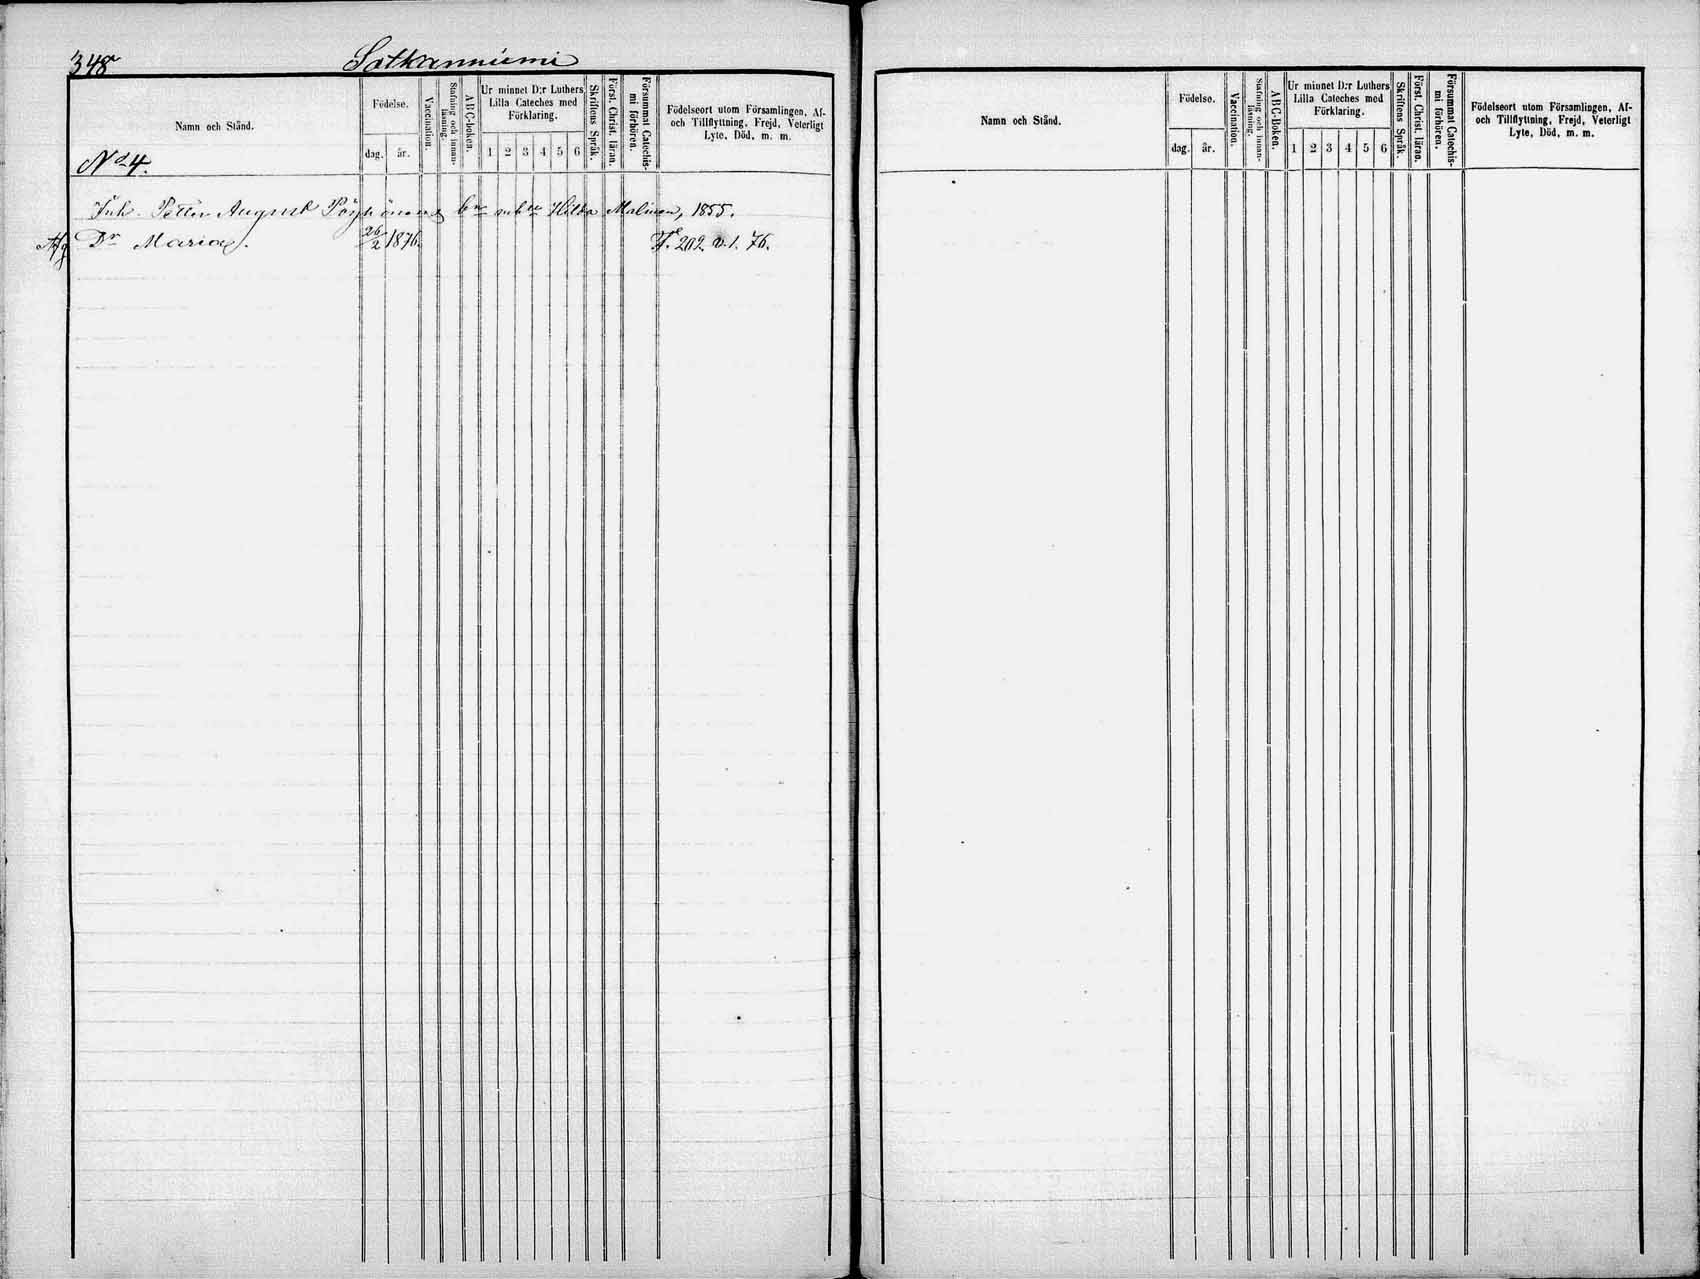 348 Sotkanniemi
Namn och Stånd.
Födelse.
dag. år.
Vaccination.
Stafning och innan-
läsning.
A B C-boken.
Ur minnet D:r Luthers
Lilla Cateches med
Förklaring.
1 2 3 4 5 6
Skriftens Språk.
Först. Christ. läran.
Försummat Catechis-
mi förhören.
Födelseort utom Församlingen, Af-
och Tillflyttning, Frejd, Veterligt
Lyte, Död, m. m.
No 4.
Inh. Petter August Pöyhönen Hilda Malinen, 1855.
Dr Maria. 26/2 1876. F. 202. v. 1. 76.
Namn och Stånd.
Födelse.
dag. år.
Vaccination.
Stafning och innan-
läsning.
A B C-Boken.
Ur minnet D:r Luthers
Lilla Cateches med
Förklaring.
1 2 3 4 5 6
Skriftens Språk.
Först. Christ. läran.
Försummat Catechis-
mi förhören.
Födelseort utom Församlingen, Af-
och Tillflyttning, Frejd, Veterligt
Lyte, Död, m. m.